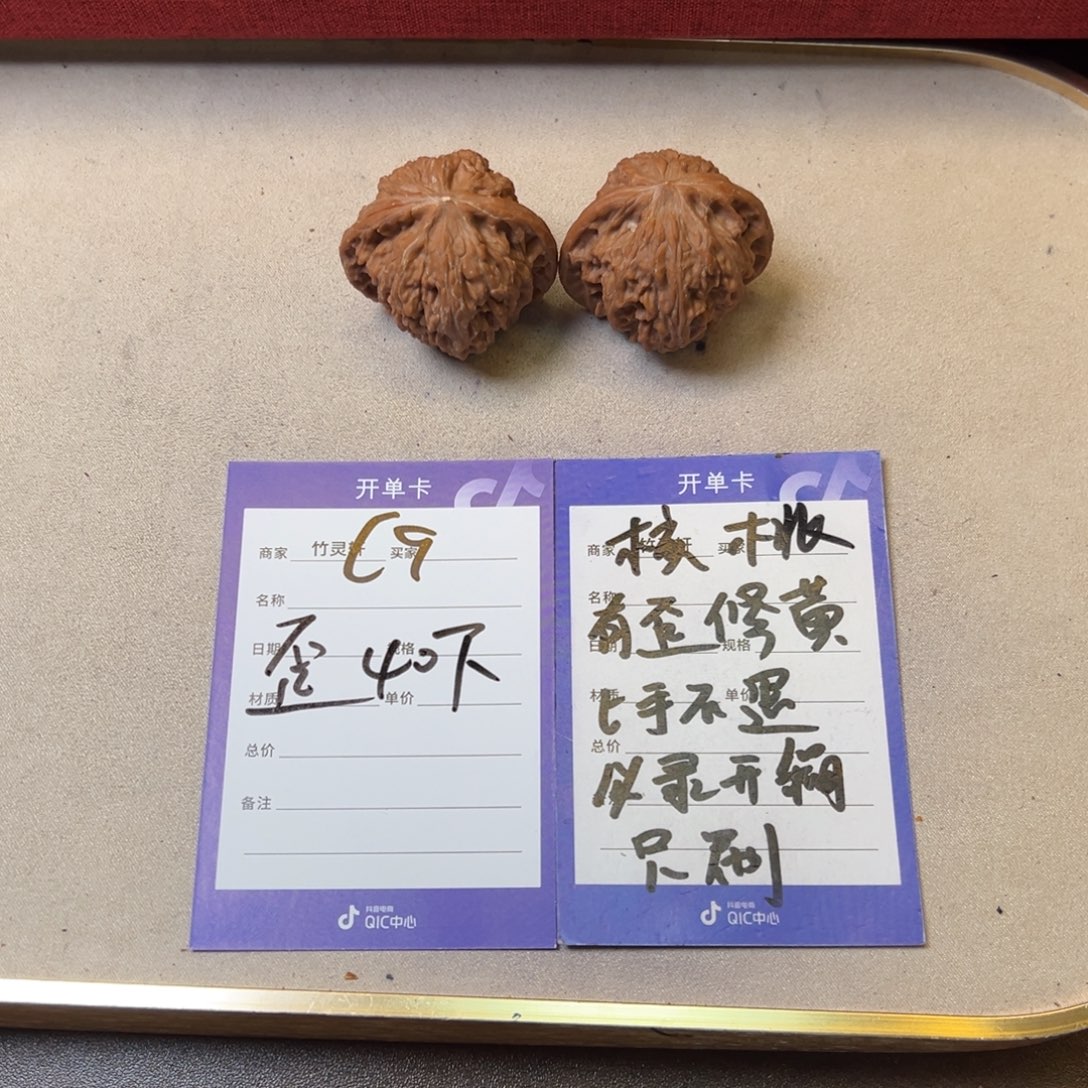 开单卡
C9
商家 竹灵轩 买家
名称
歪40下
日期 规格
材质 单价
总价
备注
抖音电商
QIC中心
开单卡
核桃
商家 竹灵轩 买家
名称
有歪修黄
日期 规格
上手不退
材质 单价
总价
必录开箱
只刷
抖音电商
QIC中心